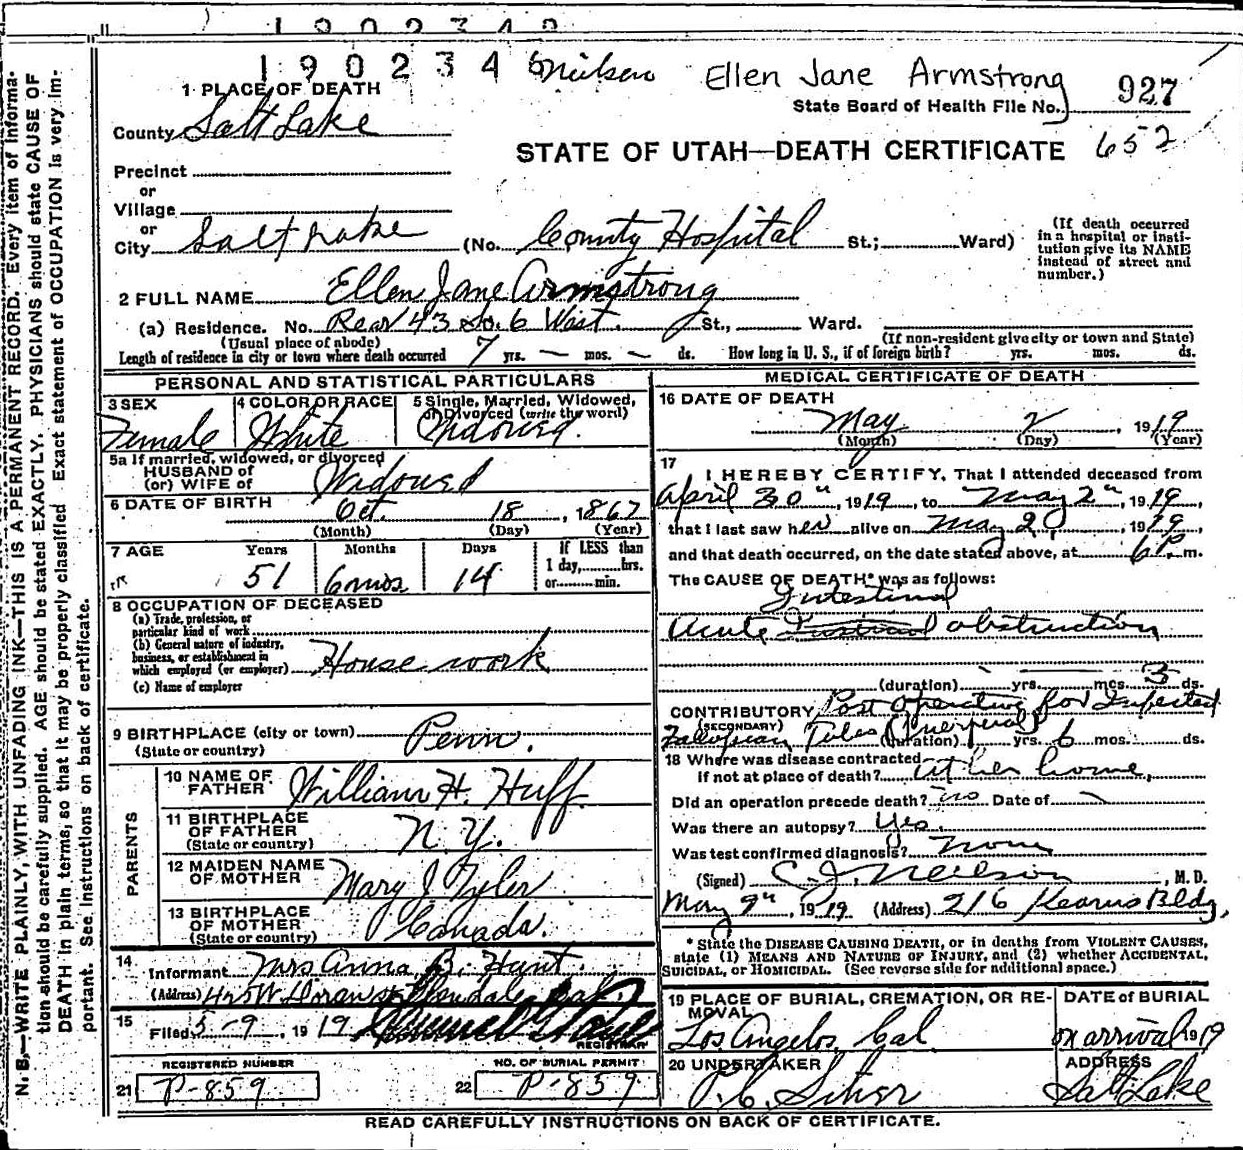 1902346 Nielsen Ellen Jane Armstrong
State Board of Health File No. 927
652
1 PLACE OF DEATH
County Salt Lake
STATE OF UTAH—DEATH CERTIFICATE
Precinct
or
Village
or
City Salt Lake (No. County Hospital St.; Ward)
(If death occurred in a hospital or insti-
tution give its NAME
instead of street and
number.)
2 FULL NAME Ellen Jane Armstrong
(a) Residence. No. Rear 43 So. 6 West. St., Ward.
(Usual place of abode) (If non-resident give city or town and State)
Length of residence in city or town where death occurred 7 yrs. — mos. — ds. How long in U. S., if of foreign birth? yrs. mos. ds.
PERSONAL AND STATISTICAL PARTICULARS
3 SEX
Female
4 COLOR OR RACE
White
5 Single, Married, Widowed,
or Divorced (write the word)
Widowed.
5a If married, widowed, or divorced
HUSBAND of
(or) WIFE of Widowed
6 DATE OF BIRTH
Oct. 18, 1867
(Month) (Day) (Year)
7 AGE Years Months Days
51 6 mos 14
If LESS than
1 day, hrs.
or min.
8 OCCUPATION OF DECEASED
(a) Trade, profession, or
particular kind of work
(b) General nature of industry,
business, or establishment in
which employed (or employer) House work
(c) Name of employer
9 BIRTHPLACE (city or town) Penn.
(State or country)
PARENTS
10 NAME OF
FATHER William H. Huff.
11 BIRTHPLACE
OF FATHER
(State or country) N. Y.
12 MAIDEN NAME
OF MOTHER Mary J. Tyler
13 BIRTHPLACE
OF MOTHER
(State or country) Canada.
14
Informant Mrs Anna B. Hunt.
(Address) Glendale, Cal.
15
Filed 5-9, 1919
REGISTRAR
REGISTERED NUMBER
21 P-859
NO. OF BURIAL PERMIT
22 P-859
MEDICAL CERTIFICATE OF DEATH
16 DATE OF DEATH
May 2, 1919
(Month) (Day) (Year)
17
I HEREBY CERTIFY, That I attended deceased from
April 30th, 1919, to May 2nd, 1919,
that I last saw her alive on May 2, 1919
and that death occurred, on the date stated above, at 6 P m.
The CAUSE OF DEATH* was as follows:
Intestinal
Acute obstruction
(duration) yrs. mos. 3 ds.
CONTRIBUTORY Post Operative for Infected
(SECONDARY)
Fallopian Tubes (Puerperal)
(duration) 1 yrs. 6 mos. ds.
18 Where was disease contracted
if not at place of death? at her home,
Did an operation precede death? no Date of
Was there an autopsy? Yes.
Was test confirmed diagnosis? None
(Signed) C. J. Neilson, M. D.
May 9th, 1919 (Address) 216 Kearns Bldg.
* State the DISEASE CAUSING DEATH, or in deaths from VIOLENT CAUSES,
state (1) MEANS AND NATURE OF INJURY, and (2) whether ACCIDENTAL,
SUICIDAL, or HOMICIDAL. (See reverse side for additional space.)
19 PLACE OF BURIAL, CREMATION, OR RE-
MOVAL
Los Angelos, Cal
DATE of BURIAL
on arrival 1919
20 UNDERTAKER
ADDRESS
Salt Lake
READ CAREFULLY INSTRUCTIONS ON BACK OF CERTIFICATE.
N. B.—WRITE PLAINLY, WITH UNFADING INK—THIS IS A PERMANENT RECORD. Every item of informa-
tion should be carefully supplied. AGE should be stated EXACTLY. PHYSICIANS should state CAUSE OF
DEATH in plain terms, so that it may be properly classified. Exact statement of OCCUPATION is very im-
portant. See instructions on back of certificate.